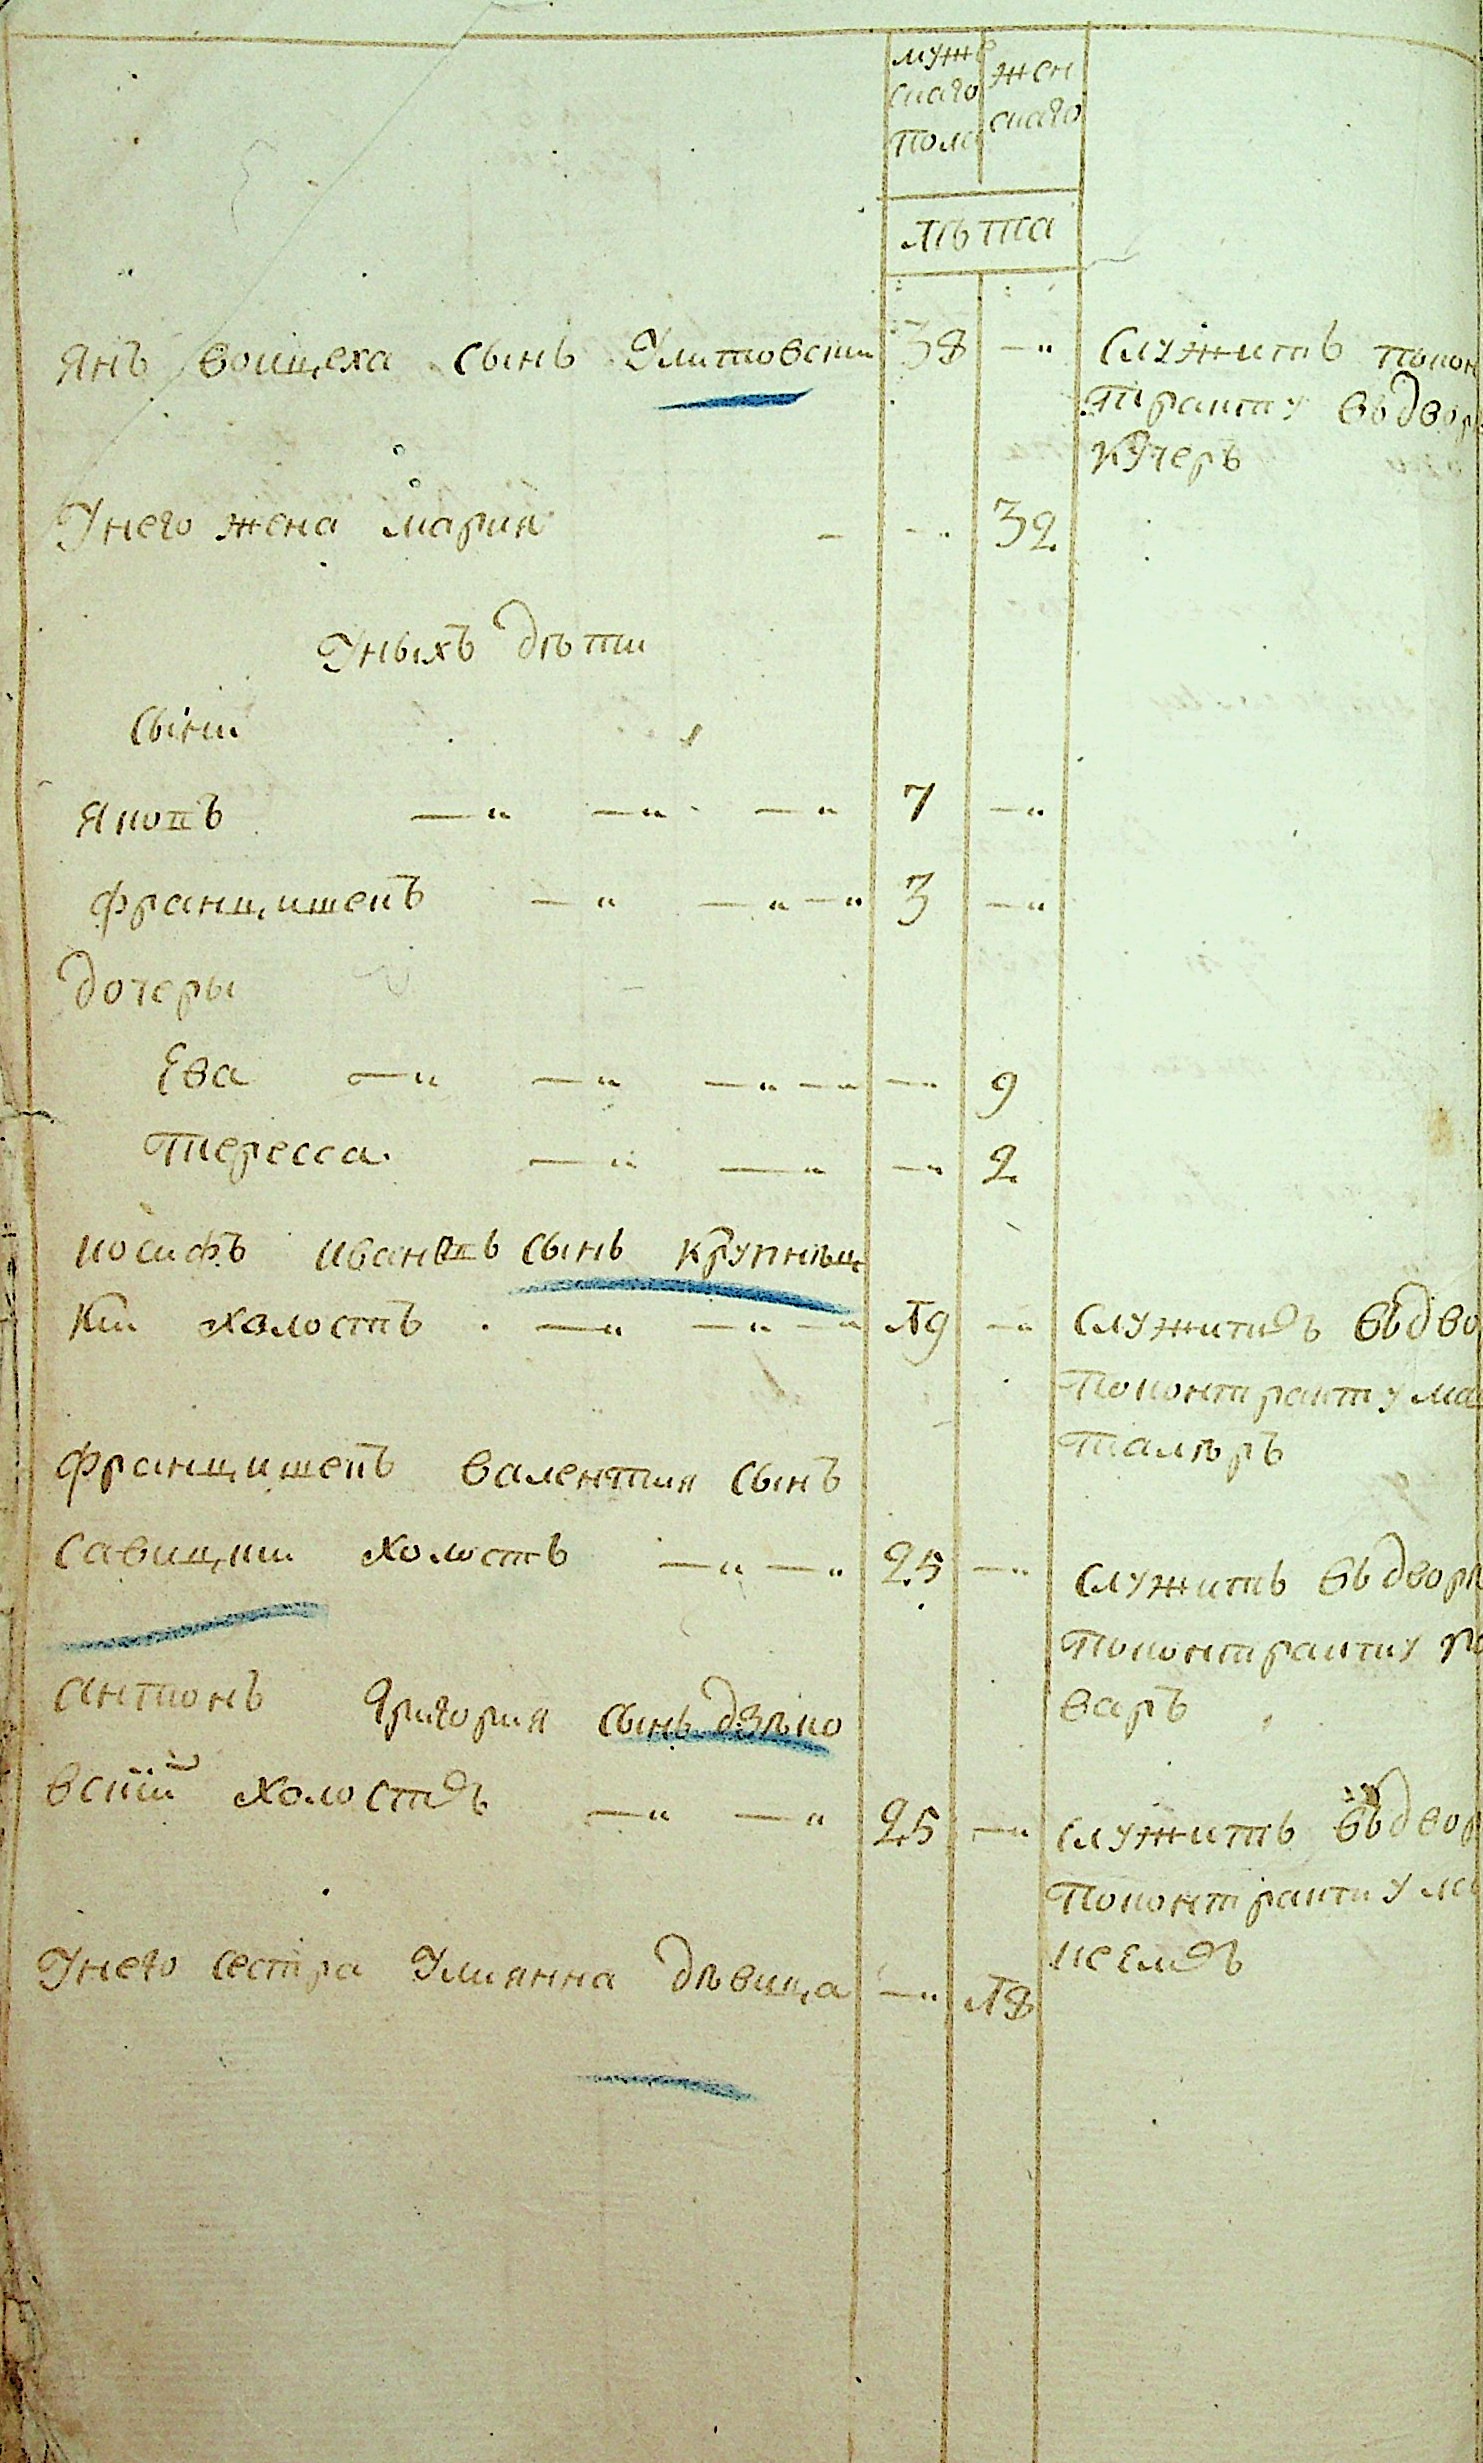 муже жен
скаго скаго
пола
лѣта
Янъ Воицеха сынъ Улитовски 38 —„ Служитъ покон
тракту въдвор
кучеръ
Унего жена Мария — —„ 32
Уныхъ дѣти
Сыни
Якопъ —„ —„ —„ 7 —„
Францишекъ —„ —„ —„ 3 —„
Дочеры
Ева —„ —„ —„ —„ —„ 9
Тересса —„ —„ —„ 2
Иосифъ сынъ Крупнѣц
ки холостъ —„ —„ —„ 19 —„ Служитъ въдво
поконтракту ма
талѣръ
Францишекъ Валентия сынъ
Савицки холостъ —„ —„ 25 —„ Служитъ въдворѣ
поконтракту
варъ
Антонъ Григория сынъ Дзѣко
вский холостъ —„ —„ 25 —„ Служитъ въдвор
поконтракту
Унего сестра Улиянна дѣвица —„ 18